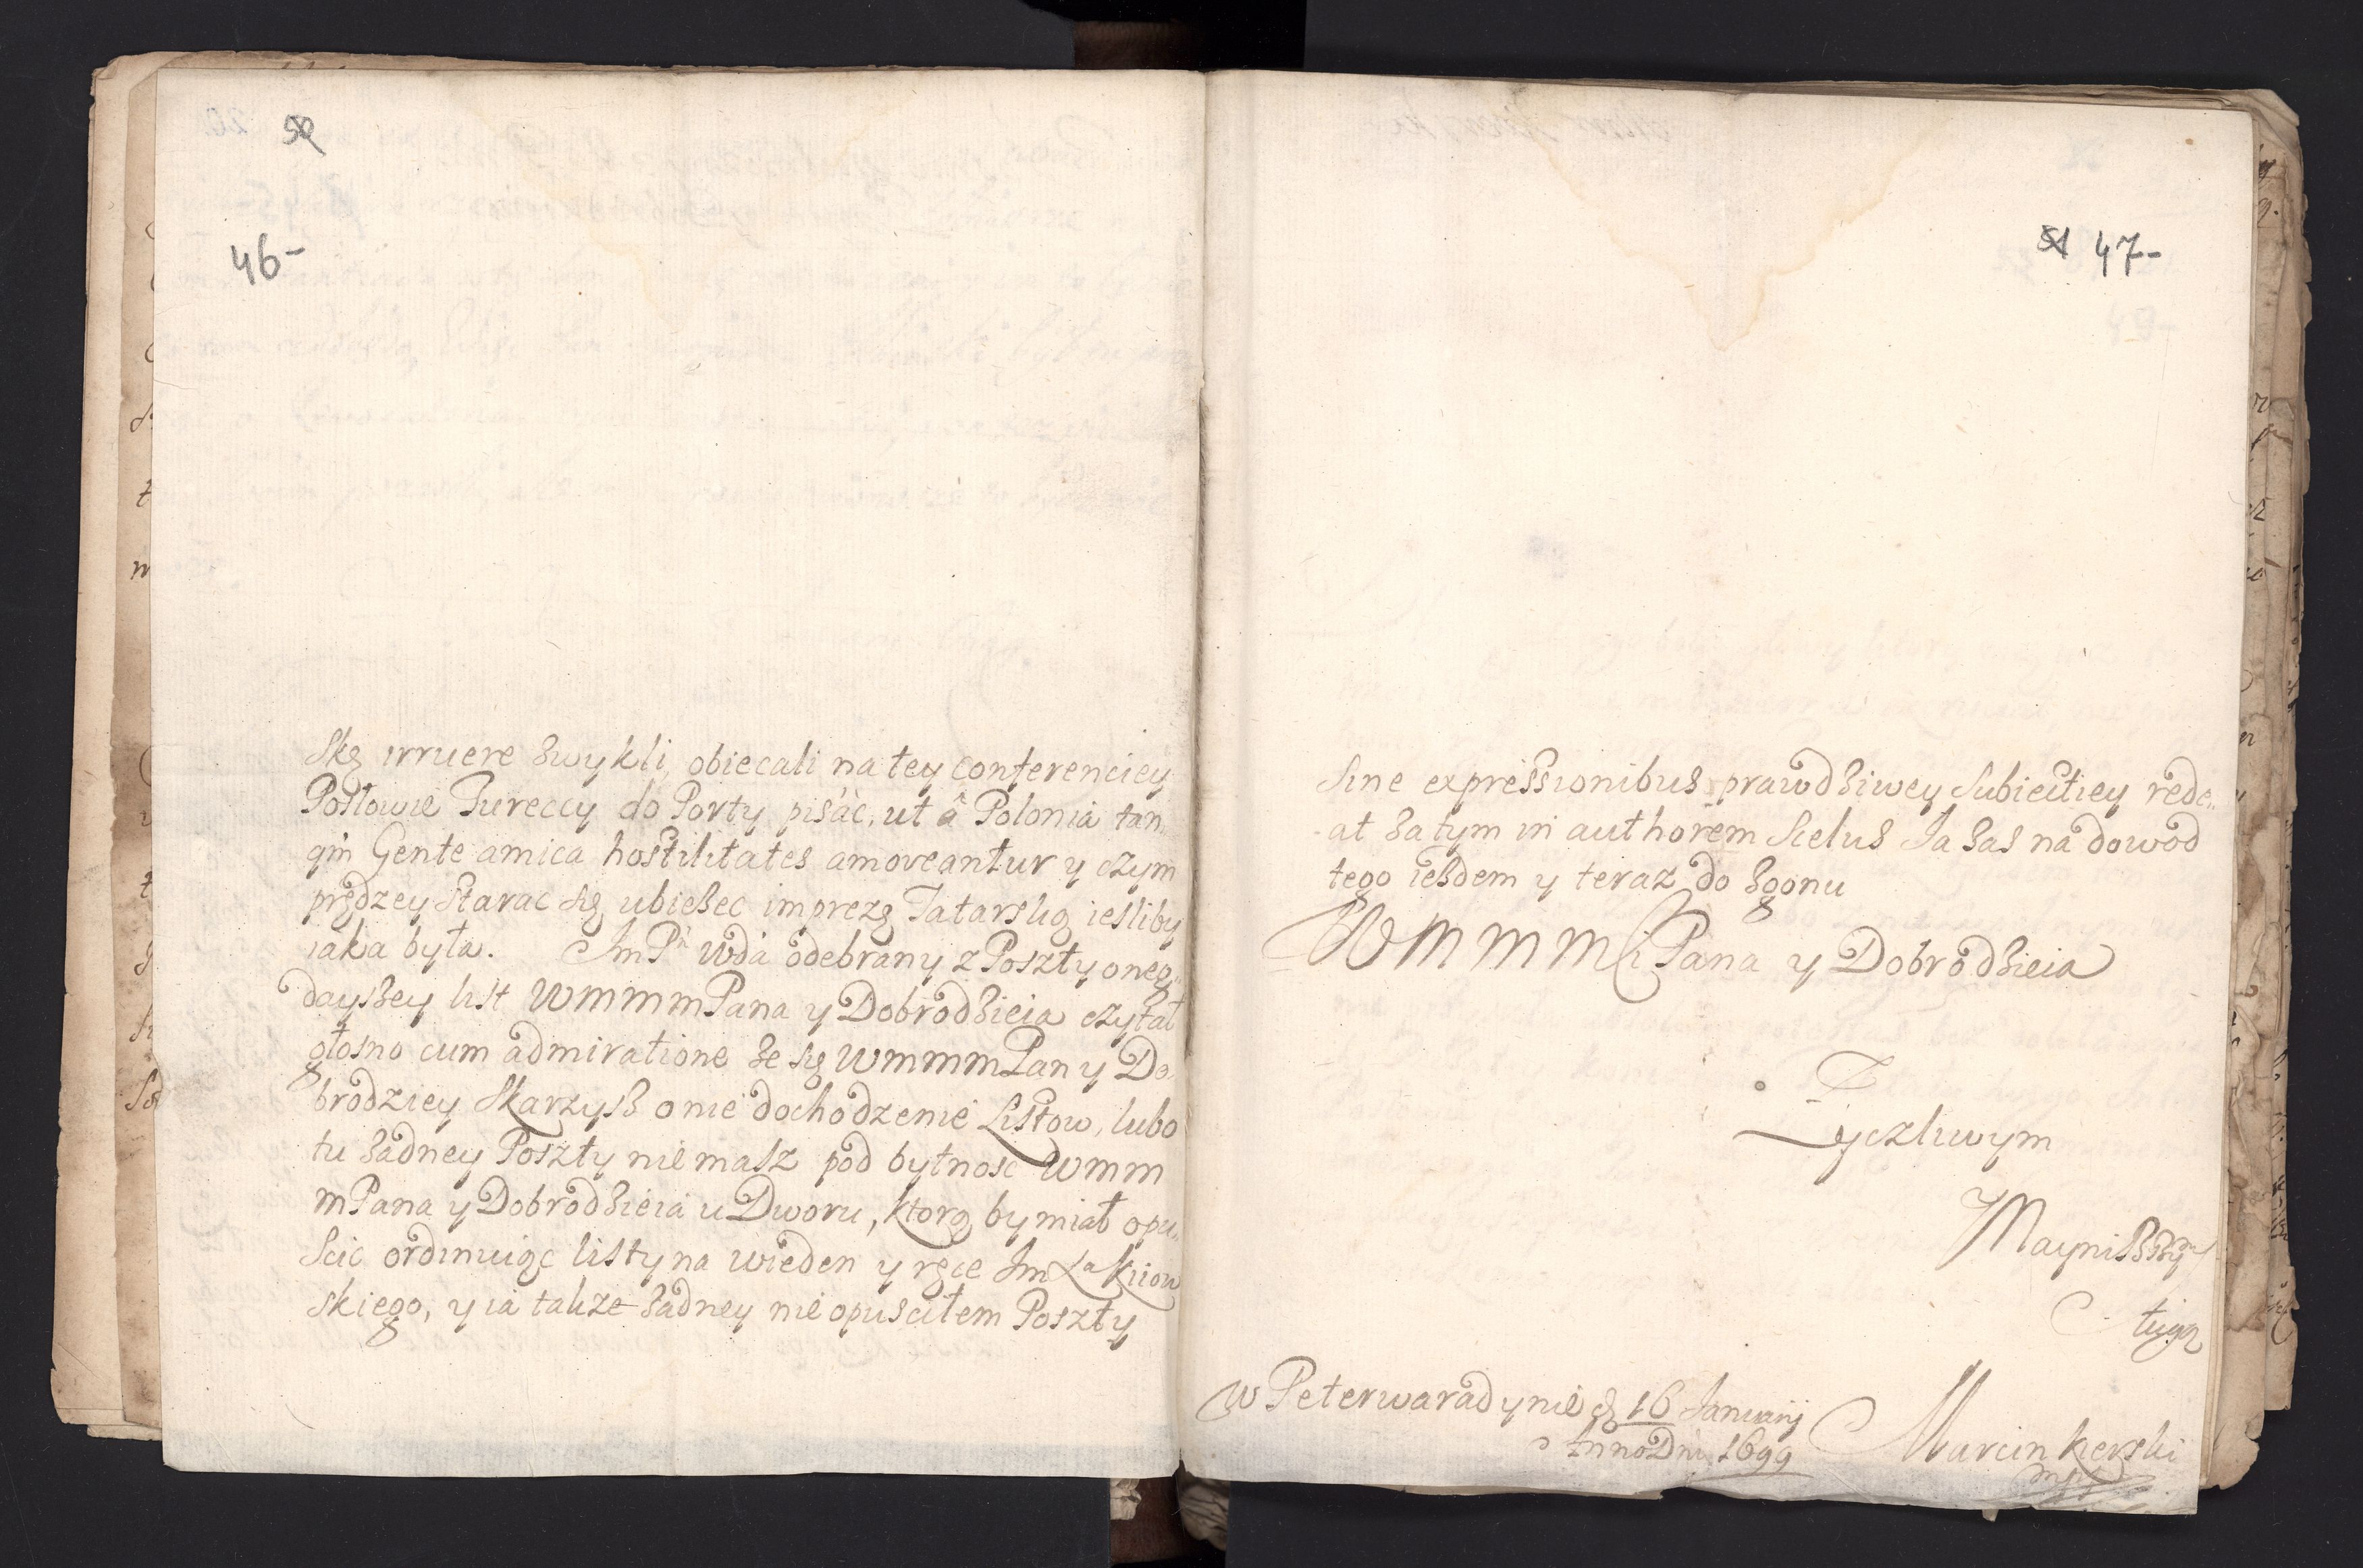 46-
Skę irruere zwykli, obiecali na tey conferenciey
Posłowie Tureccy do Porty pisác, ut â Polonia tan
qm Gente amica hostilitates amoveantur y czym
prędzey starac się ubieżec imprezę Tatarską iesliby
iaka była. Im Pn Wda odebrany z Poszty oneg„
dayszey list WMMMPana y Dobrodzieia czytał
głosno cum admiratione że się WMMMPan y Do„
brodziey skarzysz o nie dochodzenie Listow, lubo
tu żadney Poszty niemasz pod bytnosc WMM
MPana y Dobrodzieia u Dworu, ktorą by miał opu„
scic ordinuiąc listy na wieden y ręce Im Xa Kiiow
skiego, y ia także żadney nie opusciłem Poszty
47-
sine expressionibus prawdziwey subiectiey rede„
at zatym in authorem scelus Ja zas na dowod
tego iestem y teraz do zgonu
WMMMPana y Dobrodzieia
Zyczliwym
y Nayniższym
sługą
w Peterwaradynie d 16 Januarij
Anno Dni 1699
Marcin Kerski
mpp